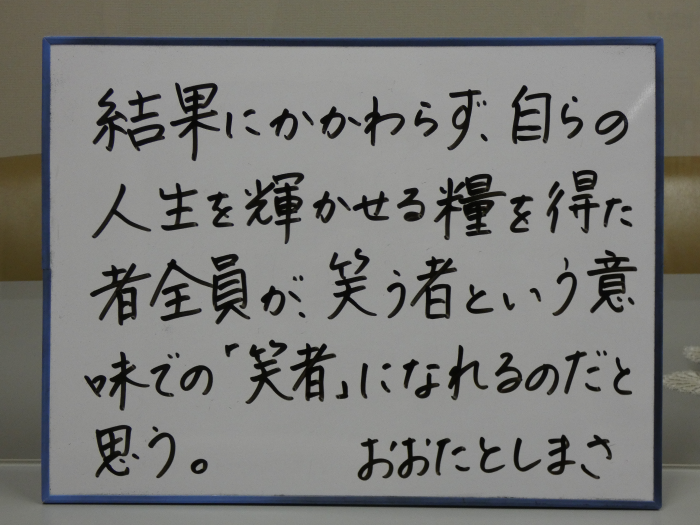 結果にかかわらず、自らの
人生を輝かせる糧を得た
者全員が、笑う者という意
味での「笑者」になれるのだと
思う。 おおたとしまさ